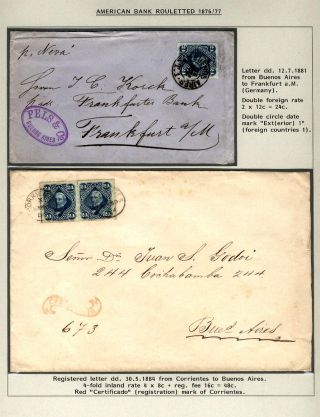 AMERICAN BANK ROULETTED 1876/77
p. Neva
Letter dd. 12.7.1881
from Buenos Aires
to Frankfurt a.M.
(Germany).
Double foreign rate
2 x 12c = 24c.
Double circle date
mark "Ext(erior) 1"
(foreign countries 1).
Herrn J. C. Korck
Frankfurter Bank
Frankfurt a/M
PELS & Co
BUENOS AIRES
24 24
Señor Dr. Juan S. Godoi
244 Cochabamba 244
673
Buenos Aires
Registered letter dd. 30.5.1884 from Corrientes to Buenos Aires.
4-fold inland rate 4 x 8c + reg. fee 16c = 48c.
Red "Certificado" (registration) mark of Corrientes.